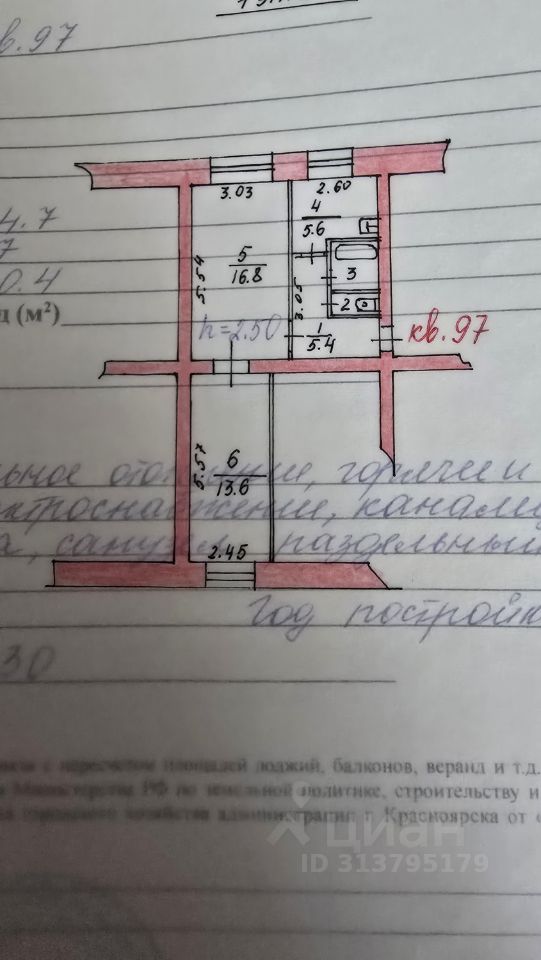 кв. 97
4.7
7
0.4
д (м²)
3.03
2.60
4
5.6
5
16.8
5.54
3
3.05
2
h=2.50
1
5.4
кв. 97
6
13.6
5.57
2.45
горячее и
канали
раздельный
Год постройк
30
пересчетом площадей лоджий, балконов, веранд и т.д.
Министерства РФ по земельной политике, строительству и
хозяйства администрации г. Красноярска от «
циан
ID 313795179